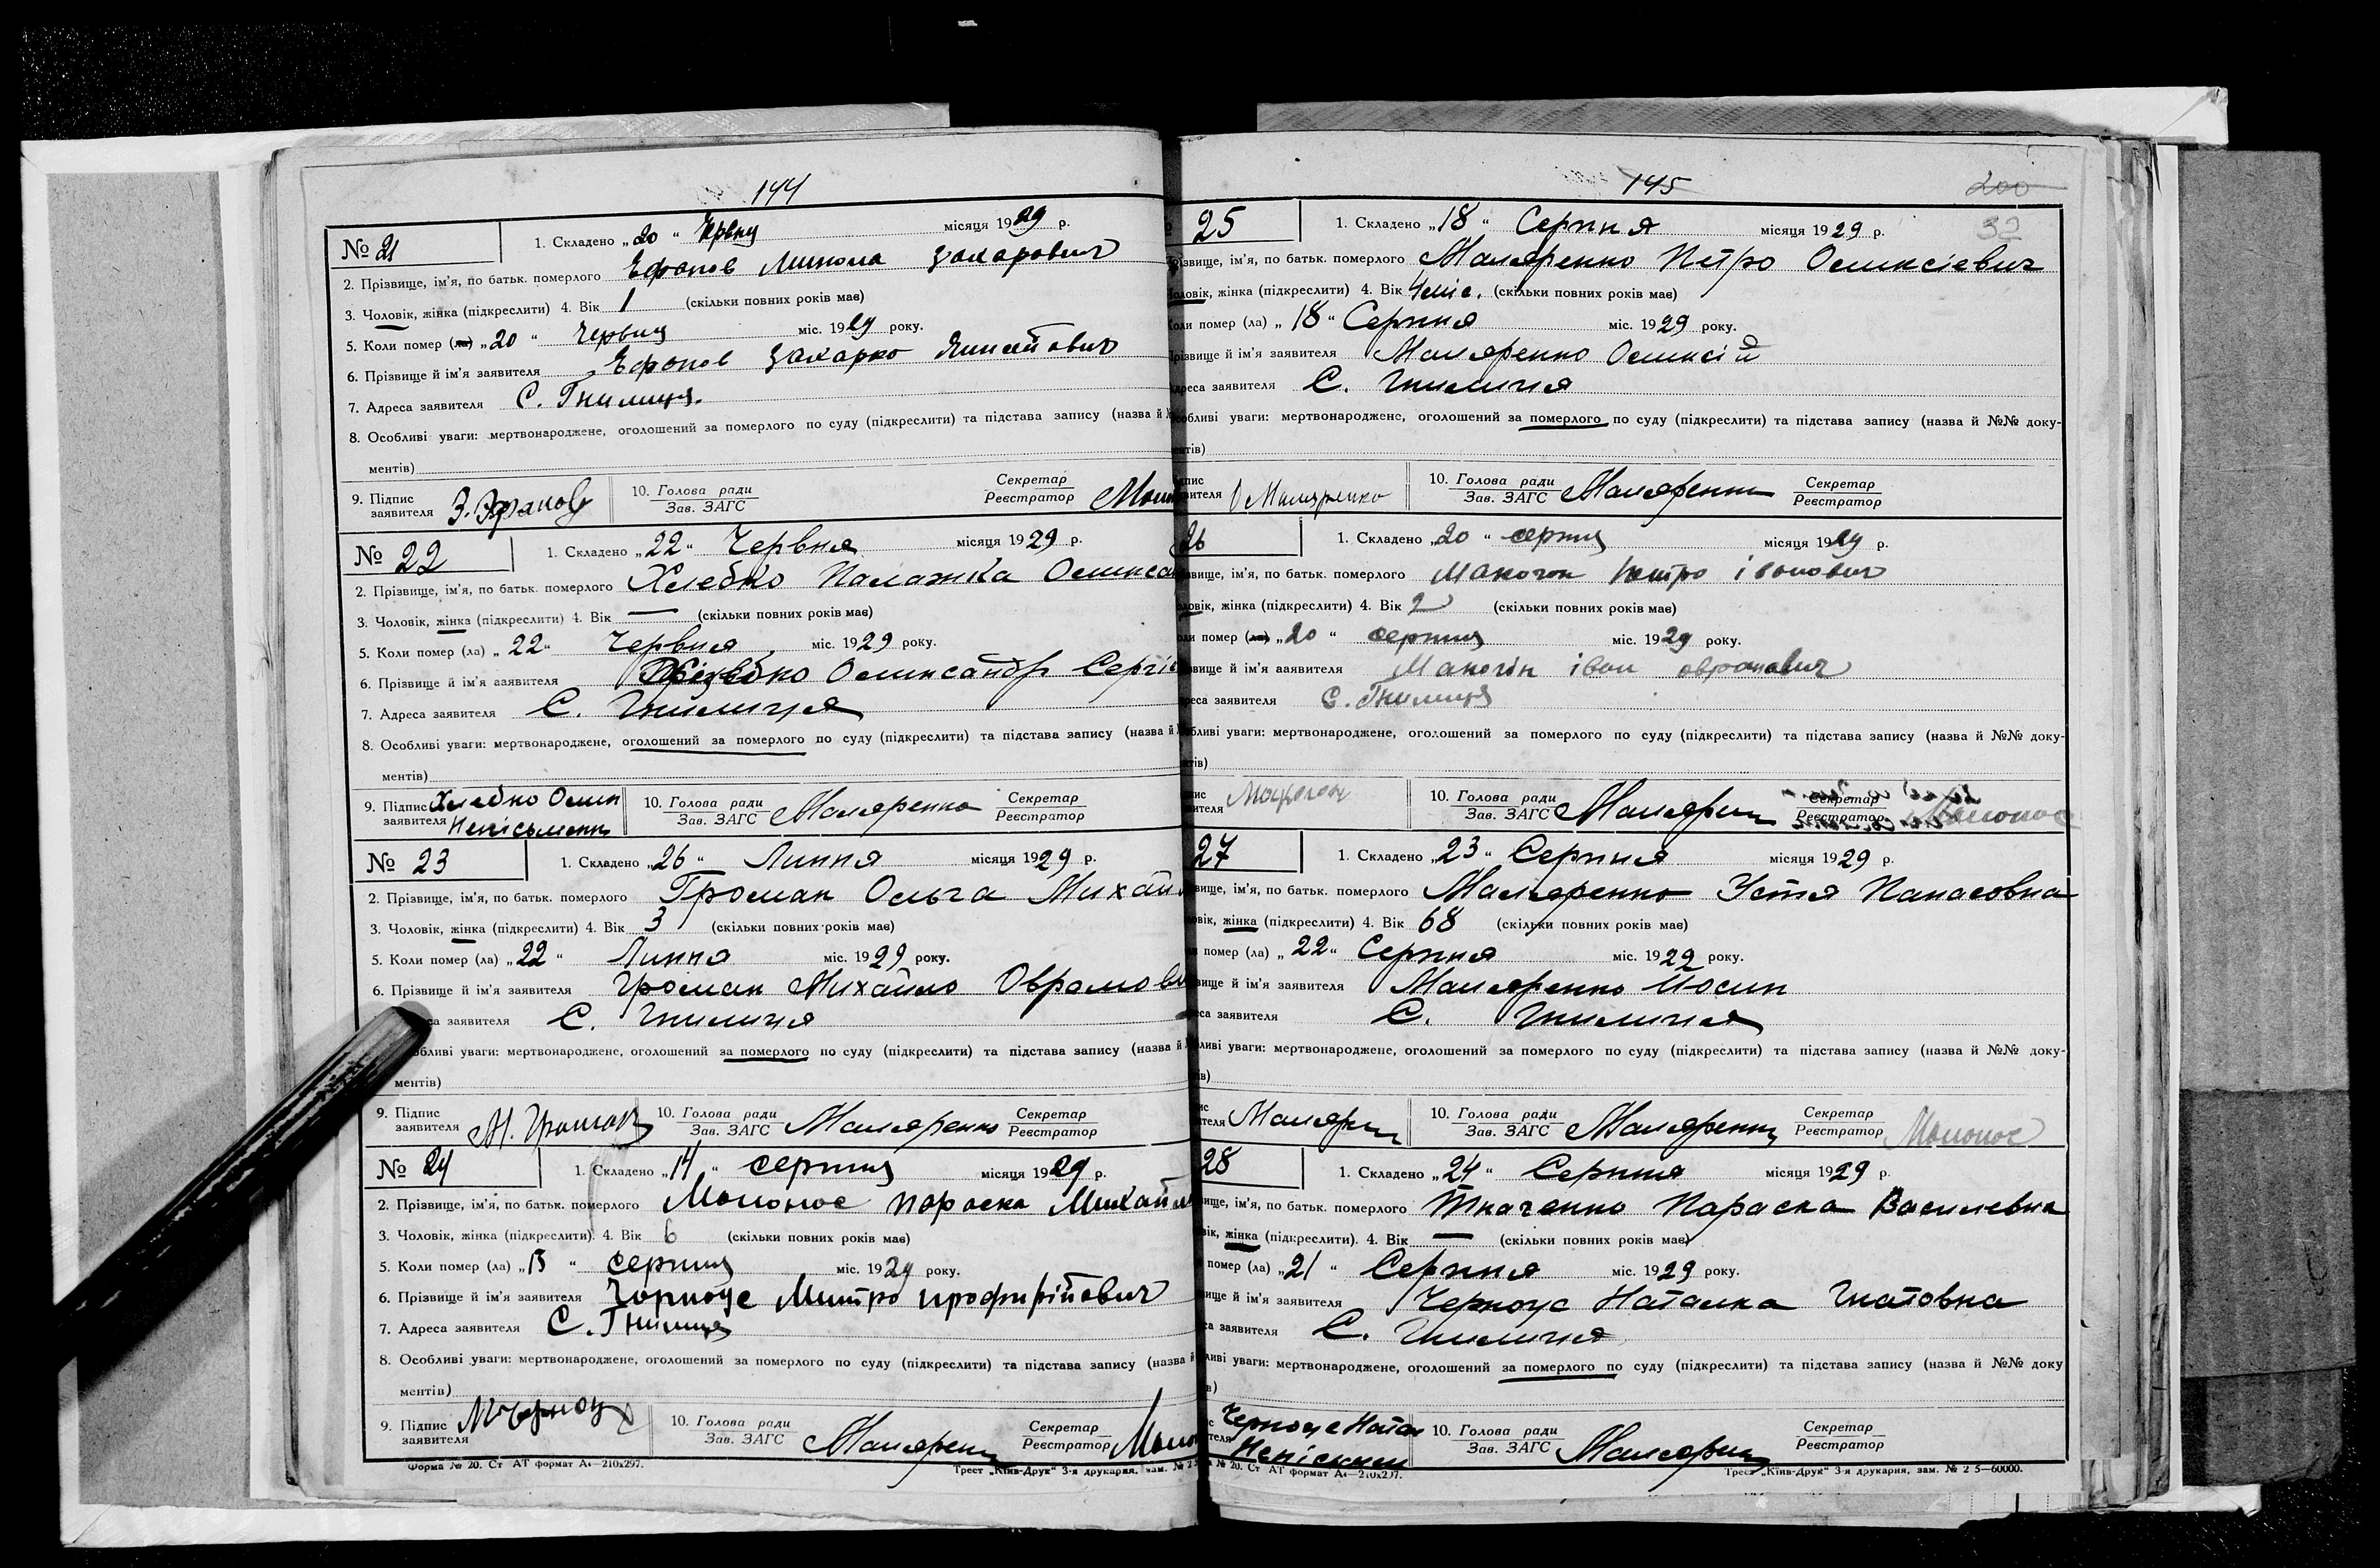 144
№ 21
1. Складено „20 “ Червця місяця 1929 р.
2. Прізвище, ім'я, по батьк. померлого Ефанов Микола Захарович
3. Чоловік, жінка (підкреслити) 4. Вік 1 (скільки повних років має)
5. Коли помер (ла) „20 “ Червця міс. 1929 року.
6. Прізвище й ім'я заявителя Ефанов Захарко
7. Адреса заявителя С. Гнилиця.
8. Особливі уваги: мертвонароджене, оголошений за померлого по суду (підкреслити) та підстава запису (назва й
ментів)
9. Підпис заявителя З. Ефанов 10. Голова ради Зав. ЗАГС Секретар Реєстратор
№ 22
1. Складено „22“ Червня місяця 1929 р.
2. Прізвище, ім'я, по батьк. померлого Хлебко Палажка Олекса
3. Чоловік, жінка (підкреслити) 4. Вік — (скільки повних років має)
5. Коли помер (ла) „ 22“ Червня міс. 1929 року.
6. Прізвище й ім'я заявителя Хлебко Олександр Сергі
7. Адреса заявителя С. Гнилиця
8. Особливі уваги: мертвонароджене, оголошений за померлого по суду (підкреслити) та підстава запису (назва й
ментів)
9. Підпис заявителя Хлебко Олек Неписьменн 10. Голова ради Зав. ЗАГС Маляренко Секретар Реєстратор
№ 23
1. Складено „26 “ Липня місяця 1929 р.
2. Прізвище, ім'я, по батьк. померлого Громан Ольга Михай
3. Чоловік, жінка (підкреслити) 4. Вік 3 (скільки повних років має)
5. Коли помер (ла) „22 “ Липня міс. 1929 року.
6. Прізвище й ім'я заявителя Громан Михайло Оврамови
са заявителя С. Гнилиця
обливі уваги: мертвонароджене, оголошений за померлого по суду (підкреслити) та підстава запису (назва й
ментів)
9. Підпис заявителя М. Громан 10. Голова ради Зав. ЗАГС Маляренко Секретар Реєстратор
№ 24
1. Складено „14 “ серпня місяця 1929 р.
2. Прізвище, ім'я, по батьк. померлого Мононос Параска Михайл
3. Чоловік, жінка (підкреслити). 4. Вік 6 (скільки повних років має)
5. Коли помер (ла) „13 “ серпня міс. 1929 року.
6. Прізвище й ім'я заявителя Чорноус Митро Профирійович
7. Адреса заявителя С. Гнилиця
8. Особливі уваги: мертвонароджене, оголошений за померлого по суду (підкреслити) та підстава запису (назва й
ментів)
9. Підпис заявителя М Чорноус 10. Голова ради Зав. ЗАГС Маляренк Секретар Реєстратор Моно
Форма № 20. Ст АТ формат А4—210х297. Трест „Київ-Друк“ 3-я друкарня, зам. № 2
145
200
32
25
1. Складено „18 “ Серпня місяця 1929 р.
ізвище, ім'я, по батьк. померлого Маляренко Петро Олексієвич
оловік, жінка (підкреслити) 4. Вік 4 міс. (скільки повних років має)
оли помер (ла) „ 18 “ Серпня міс. 1929 року.
різвище й ім'я заявителя Маляренко Олексій
дреса заявителя С. Гнилиця
собливі уваги: мертвонароджене, оголошений за померлого по суду (підкреслити) та підстава запису (назва й №№ доку-
ентів)
пис вителя О Маляренко 10. Голова ради Зав. ЗАГС Маляренко Секретар Реєстратор
26
1. Складено „20 “ серпня місяця 1929 р.
вище, ім'я, по батьк. померлого Макогон Петро Іванович
ловік, жінка (підкреслити) 4. Вік 2 (скільки повних років має)
оли помер (ла) „20 “ серпня міс. 1929 року.
вище й ім'я заявителя Макогін Іван Оврамович
реса заявителя С. Гнилиця
бливі уваги: мертвонароджене, оголошений за померлого по суду (підкреслити) та підстава запису (назва й №№ доку-
тів)
пис вителя Макогон 10. Голова ради Зав. ЗАГС Маляренк Секретар Реєстратор Мононос
27
1. Складено „23 “ Серпня місяця 1929 р.
вище, ім'я, по батьк. померлого Маляренко Устя Панасовна
овік, жінка (підкреслити) 4. Вік 68 (скільки повних років має)
и помер (ла) „ 22“ Серпня міс. 1929 року.
вище й ім'я заявителя Маляренко Йосип
еса заявителя С. Гнилиця
ливі уваги: мертвонароджене, оголошений за померлого по суду (підкреслити) та підстава запису (назва й №№ доку-
ів)
ис ителя Маляренк 10. Голова ради Зав. ЗАГС Маляренк Секретар Реєстратор Мононос
28
1. Складено „24 “ Серпня місяця 1929 р.
ище, ім'я, по батьк. померлого Ткаченко Параска Василевна
вік, жінка (підкреслити). 4. Вік — (скільки повних років має)
помер (ла) „21 “ Серпня міс. 1929 року.
ище й ім'я заявителя Черноус Наталка Гнатовна
са заявителя С. Гнилиця
ливі уваги: мертвонароджене, оголошений за померлого по суду (підкреслити) та підстава запису (назва й №№ доку
в)
с теля Черноус Натал Неписьмен 10. Голова ради Зав. ЗАГС Маляренк Секретар Реєстратор
№ 20. Ст АТ формат А4—210х297. Трест „Київ-Друк“ 3-я друкарня, зам. № 2 5—60000.